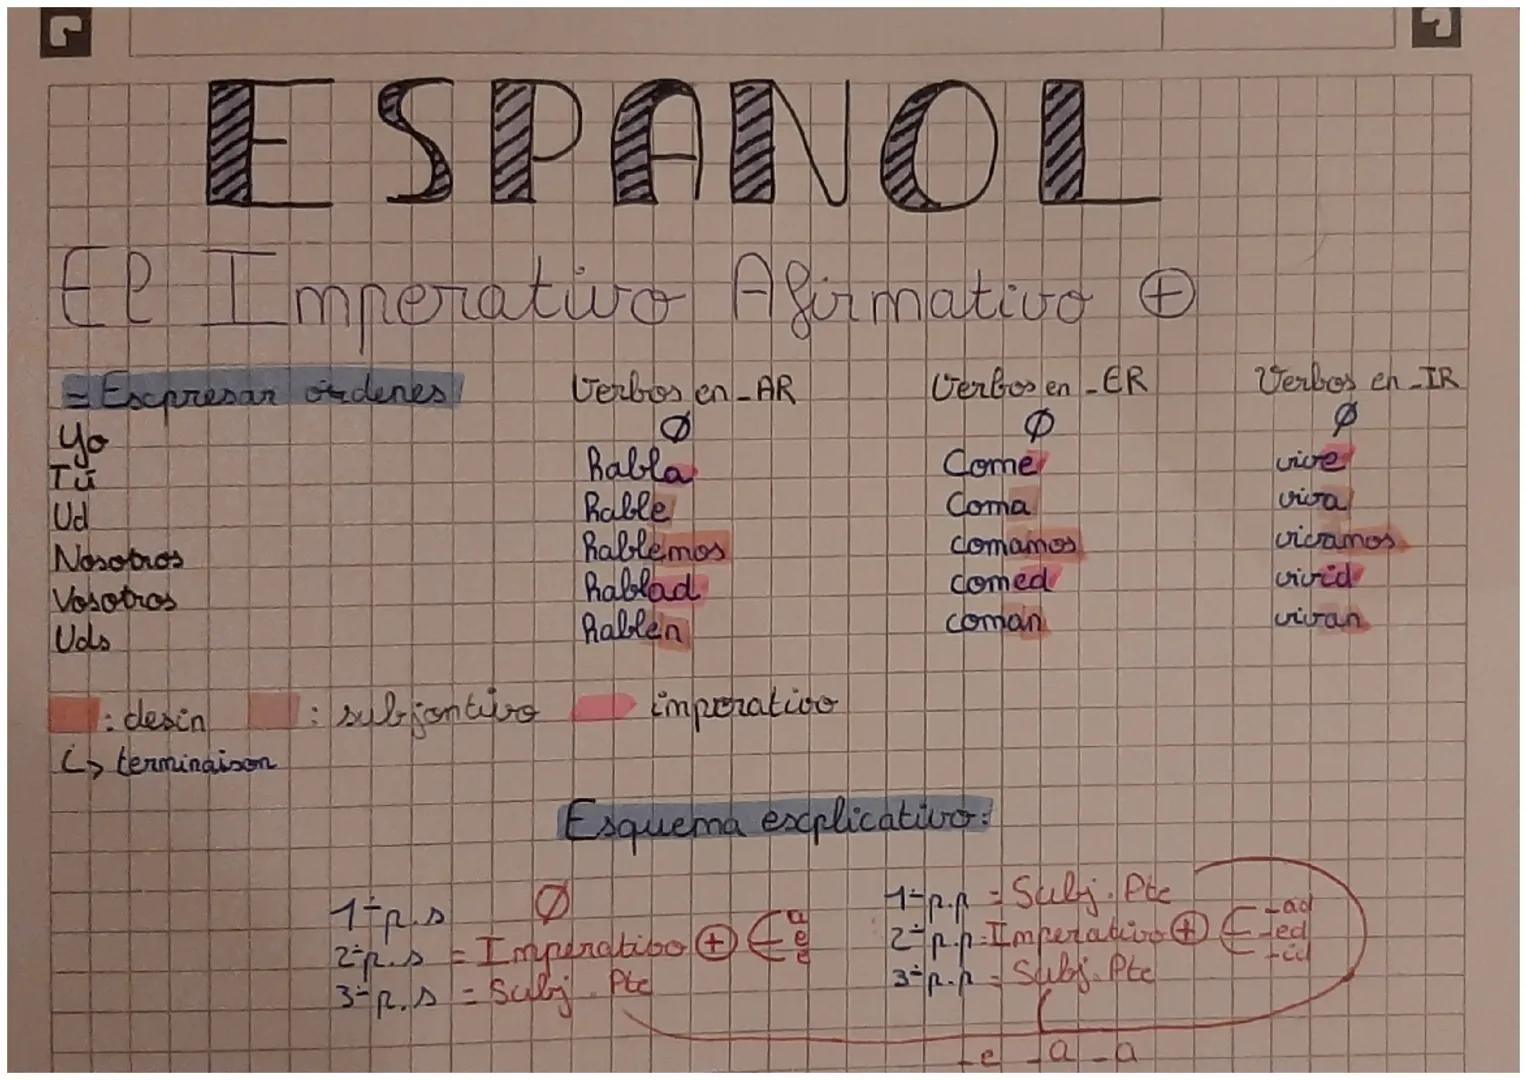 ESPANOL
El Imperativo Afirmativo ⊕
= Expresar órdenes Verbos en -AR Verbos en -ER Verbos en -IR
Yo Ø Ø Ø
Tú habla Come vive
Ud hable Coma viva
Nosotros hablemos comamos vivamos
Vosotros hablad comed vivid
Uds hablen coman vivan
: desin : subjontivo imperativo
↳ terminaison
Esquema explicativo:
1÷p.s Ø 1÷p.p = Subj. Pte
2÷p.s = Imperativo ⊕ a e e 2÷p.p = Imperativo ⊕ -ad -ed -id
3÷p.s = Subj. Pte 3÷p.p = Subj. Pte
-e -a -a